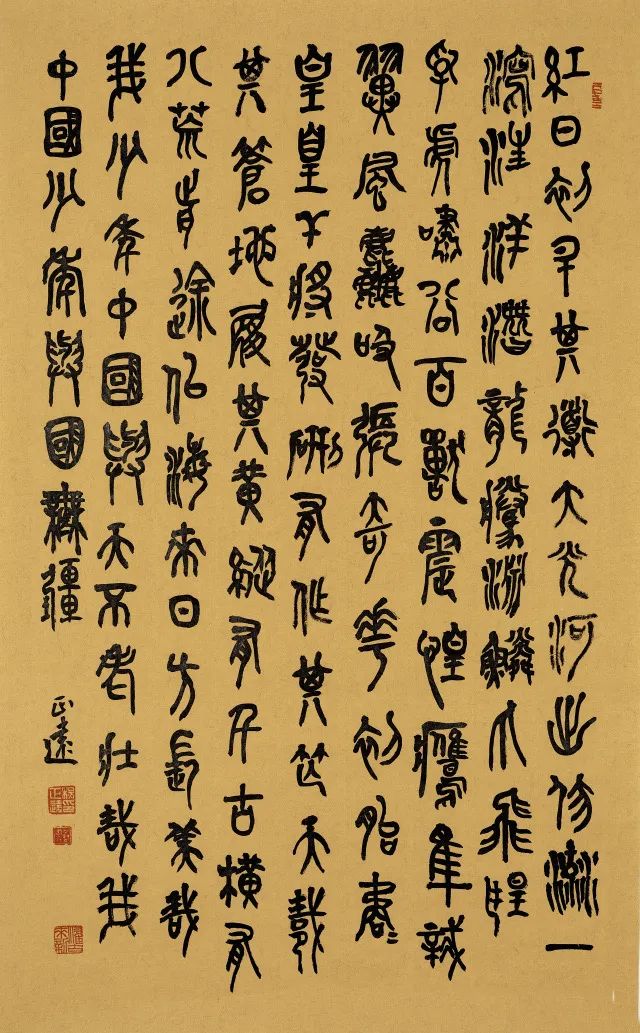 紅日初升其道大光河出伏流一
瀉汪洋潛龍騰淵鱗爪飛揚
乳虎嘯谷百獸震惶鷹隼試
翼風塵吸張奇花初胎矞〻
皇皇干將發硎有作其芒天戴
其蒼地履其黃縱有千古橫有
八荒前途似海來日方長美哉
我少年中國與天不老壯哉我
中國少年與國無疆
正遠